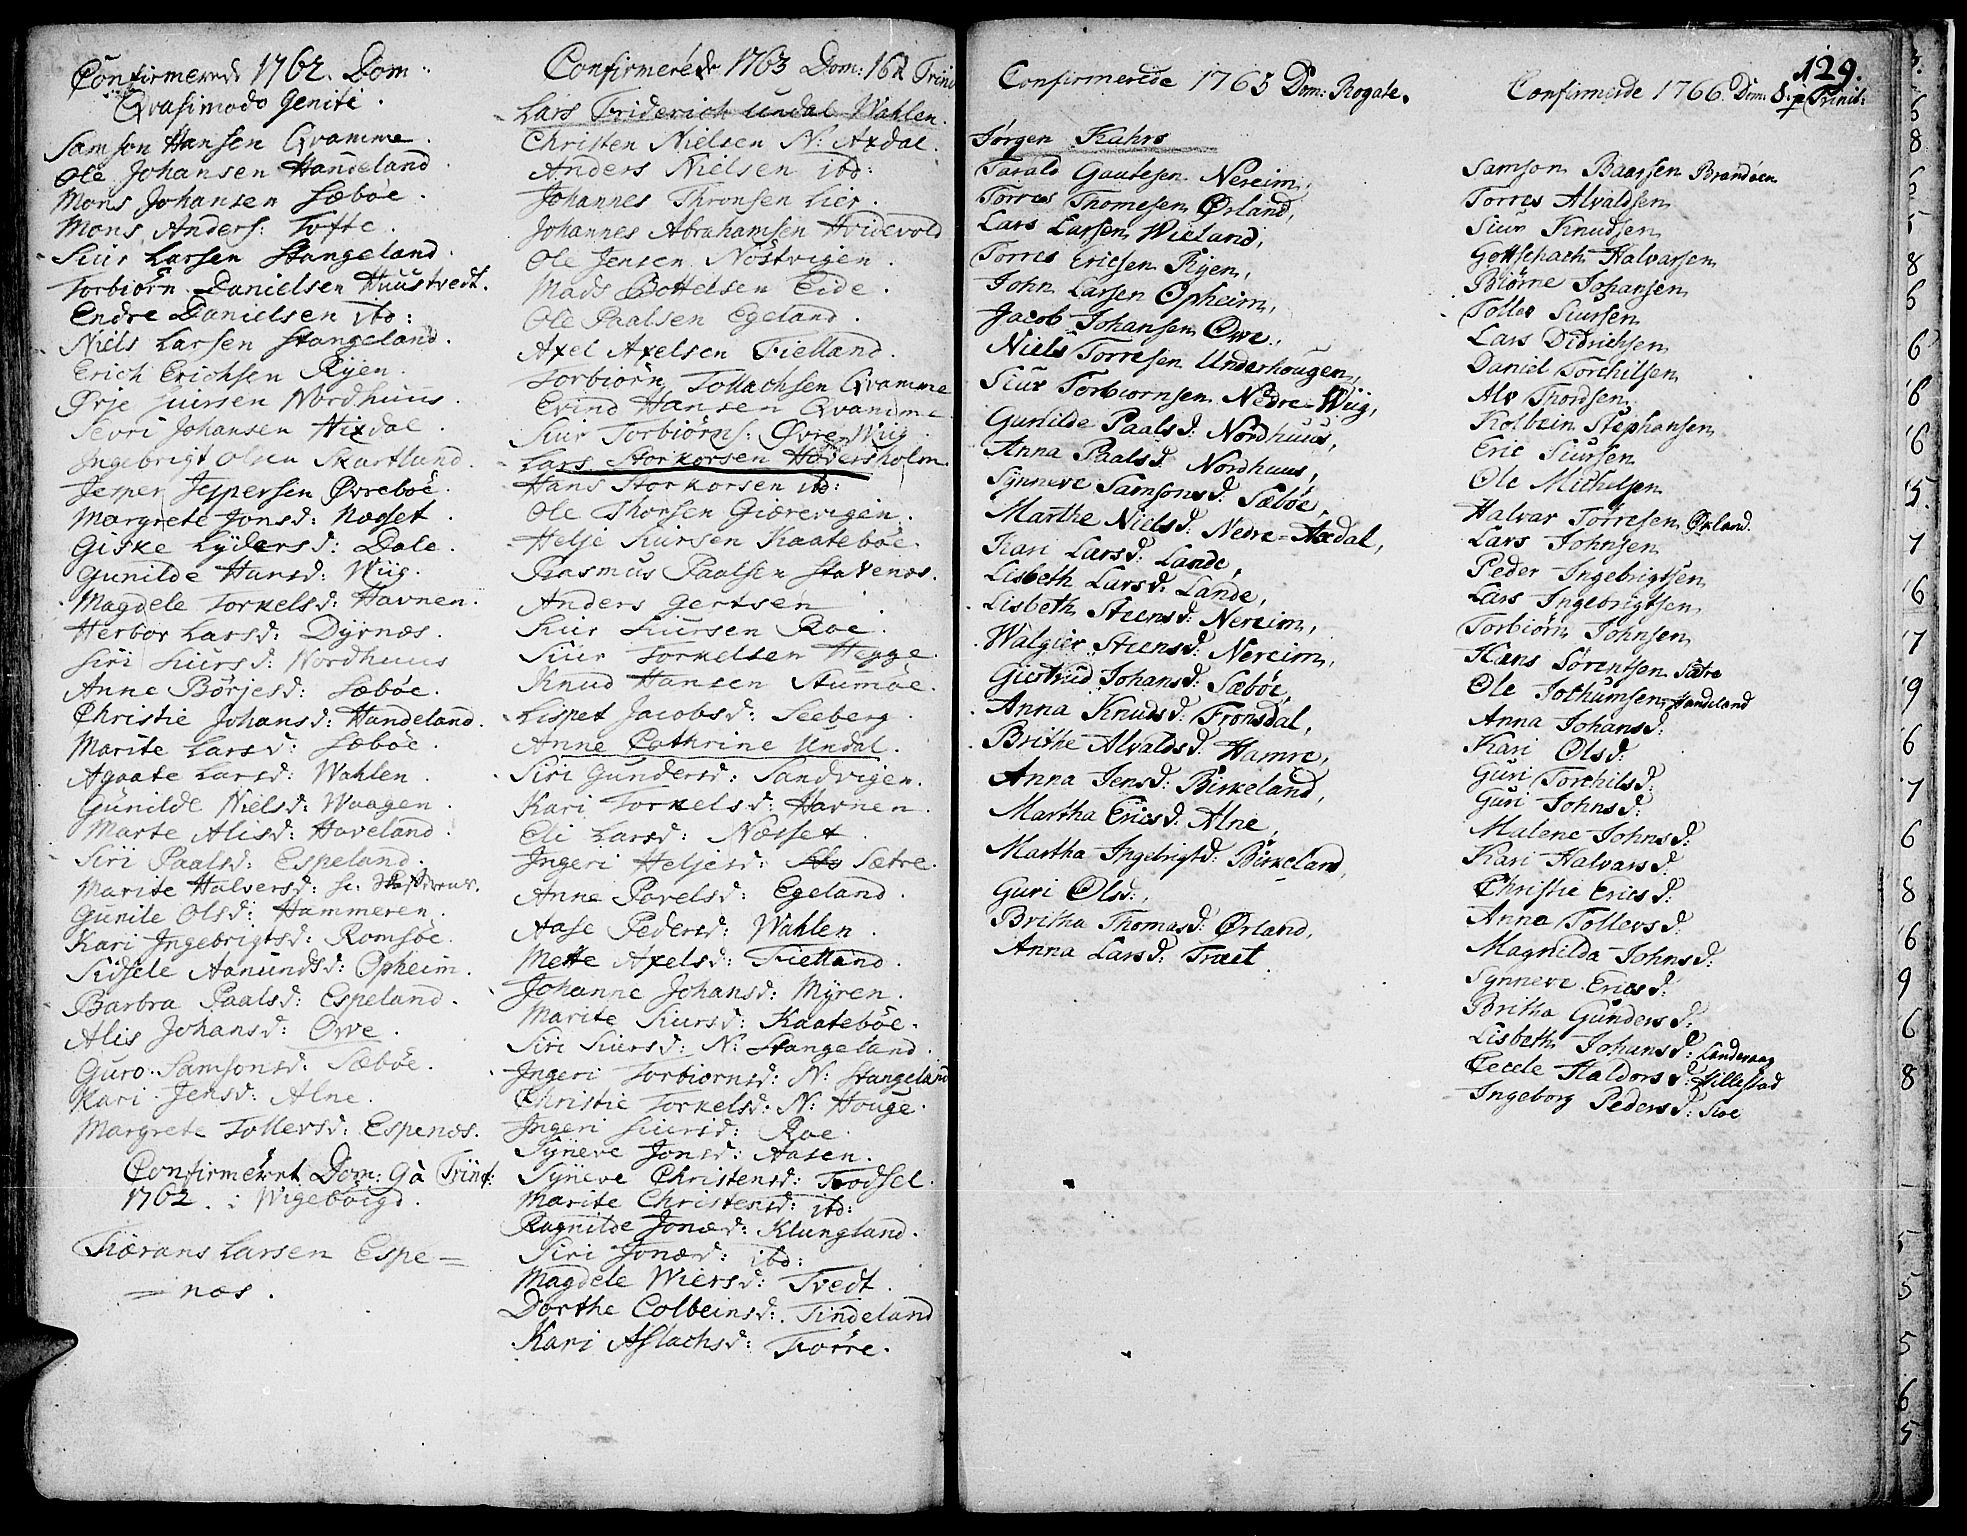 Confirmerede 1762. Dom:
Qvasimodo geniti.
Samson Hansen Qvamme.
Ole Johansen Handeland
Mons Johansen Sæbøe.
Mons Anders: Tofte.
Siur Larsen Stangeland.
Torbiørn Danielsen Huustvedt.
Endre Danielsen ibd:
Niels Larsen Stangeland.
Erich Erichsen Ryen.
Ørje Siursen Nordhuus.
Sevri Johansen Hixdal.
Ingebrigt Olsen Skartland.
Jesper Jespersen Øvrebøe.
Margrete Jonsd: Næsset.
Giske Lyders d: Dale.
Gunilde Hansd: Wiig.
Magdele Torkelsd: Havnen.
Herbor Larsd: Dyrnæs.
Siri Siursd: Nordhuus
Anne Børjesd: Sæbøe.
Christie Johansd: Handeland.
Marite Larsd: Sæbøe.
Agaate Larsd: Wahlen.
Gunilde Nielsd: Waagen.
Marte Alisd: Haveland.
Siri Paalsd: Espeland.
Marite Halversd:
Gunile Olsd: Hammeren.
Kari Ingebrigtsd: Romsøe.
Sidsele Aanundsd: Opheim.
Barbra Paalsd: Espeland.
Alis Johansd: Owe.
Guro Samsonsd: Sæbøe.
Kari Jensd: Alne.
Margrete Tollersd: Espenæs.
Confirmeret Dom: 9 à Trinit:
1762. i Wigebøigd.
Siærans Larsen Espe=
=næs.
Confirmerede 1763 Dom: 16 à Trinit
Lars Friderich Undal Wahlen.
Christen Nielsen N: Axdal.
Anders Nielsen ibd:
Johannes Thronsen Lier.
Johannes Abrahamsen Hvidevold
Ole Jensen Nøstvigen.
Mads Bottelsen Eide.
Ole Paalsen Egeland.
Axel Axelsen Fielland.
Torbiørn Tollachsen Qvamme
Evind Hansen Qvamme
Siur Torbiørns: Øvre Wiig.
Lars Storkorsen Hadersholm.
Hans Storkorsen ibd:
Ole Thorsen Giærevigen.
Helje Siursen Kaatebøe.
Rasmus Paalsen Stavenæs.
Anders Gertsen
Siur Siursen Roe.
Siur Torkelsen Hegge.
Knud Hansen Stumøe.
Lispet Jacobsd: Seeberg.
Anne Cathrine Undal.
Siri Gundersd: Sandvigen.
Kari Torkelsd: Havnen.
Eli Larsd: Næsset.
Ingeri Heljesd: Sætre.
Anne Povelsd: Egeland.
Aase Pedersd: Wahlen.
Mette Axelsd: Fielland.
Johanne Johansd: Myren.
Marite Siursd: Kaatebøe.
Siri Siursd: N: Stangeland.
Ingeri Torbiørnsd: N: Stangeland
Christie Torkelsd: N: Houge.
Ingeri Siursd: Roe.
Syneve Jonsd: Aasen.
Syneve Christensd: Trodsel.
Marite Christensd: ibd:
Ragnilde Jonæd: Klungland.
Siri Jonæd: ibd:
Magdele Wiersd: Tvedt.
Dorthe Colbeinsd: Tindeland
Kari Aslachsd: Tiørre.
129.
Confirmerede 1765 Dom: Rogate.
Jørgen Kahrs
Tarald Gautesen Nereim,
Torres Thomesen Ørland,
Lars Larsen Wieland,
Torres Ericsen Ryen,
John Larsen Opheim,
Jacob Johansen Owe,
Niels Torresen Underhougen,
Siur Torbiørnsen Nedre-Wiig,
Gunilde Paalsd: Nordhuus,
Anna Paalsd: Nordhuus,
Synneve Samsonsd: Sæbøe,
Marthe Nielsd: Nedre-Axdal,
Kari Larsd: Lande,
Lisbeth Larsd: Lande,
Lisbeth Steensd: Nereim,
Walgier Steensd: Nereim,
Giertrud Johansd: Sæbøe,
Anna Knudsd: Fronsdal,
Brithe Alvaldsd: Hamre,
Anna Jensd: Birkeland,
Martha Ericsd: Alne,
Martha Ingebrigtsd: Birkeland,
Guri Olsd:,
Britha Thomasd: Ørland,
Anna Larsd: Træet
Confirmerde 1766 Dom: 8. p. Trinit:
Samson Baarsen Brandøen
Torres Alvaldsen
Siur Knudsen
Gottschach Halvarsen
Biørne Johansen
Toller Siursen
Lars Didrichsen
Daniel Torchilsen
Alv Thordsen
Kolbein Stephansen
Eric Siursen
Ole Michelsen
Halvar Torresen Ørland
Lars Johnsen
Peder Ingebrigtsen
Lars Ingebrigtsen
Torbiørn Johnsen
Hans Sørentsen Sætre
Ole Jothumsen Handeland
Anna Johansd:
Kari Olsd:
Guri Torchilsd:
Guri Johnsd:
Malene Johnsd:
Kari Halvarsd:
Christie Ericsd:
Anna Tollersd:
Magnilda Johnsd:
Synneve Ericsd:
Britha Gundersd:
Lisbeth Johansd: Landevaag
Cecele Haldorsd: Hillestad
Ingeborg Pedersd: Siøe